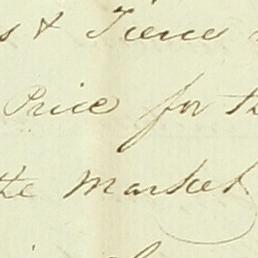 & Tierce
Price for th
the market